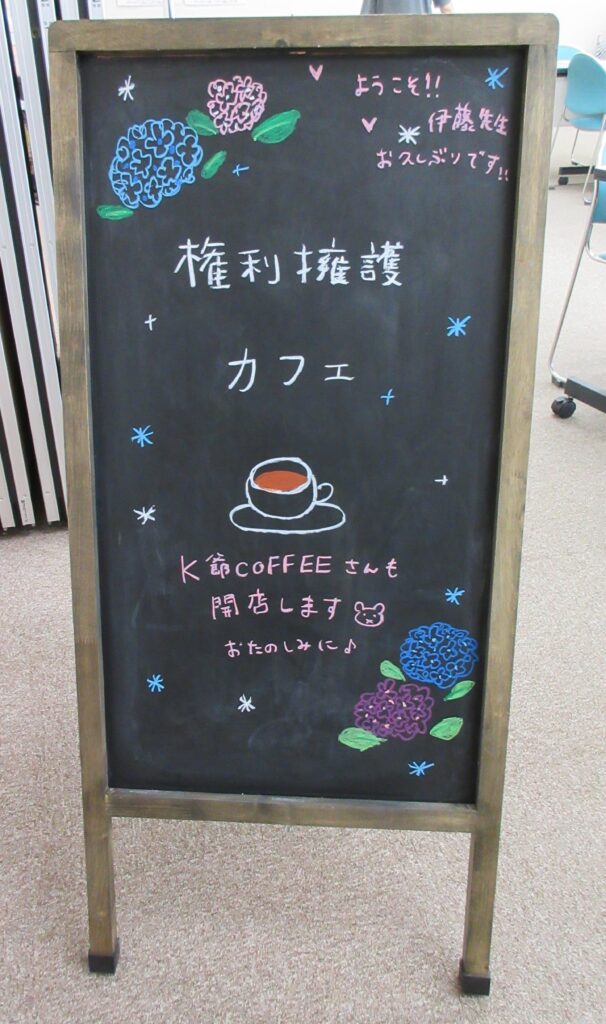 ようこそ!!
伊藤先生
お久しぶりです!!
権利擁護
カフェ
K爺COFFEEさんも
開店します
おたのしみに♪